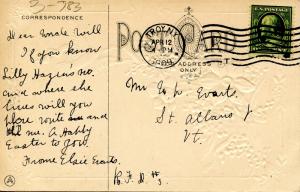 3-783
CORRESPONDENCE
POST CARD
ADDRESS
ONLY
TROY, N.Y.
APR 12
U.S. POSTAGE
Dear Uncle Will
If you know
Lilly Hazen's no.
and where she
lives will you
please route and
tell me. A Happy
Easter to you.
From Elsie
Mr. W. Evarts
St. Albans
Vt.
R.F.D. #3.